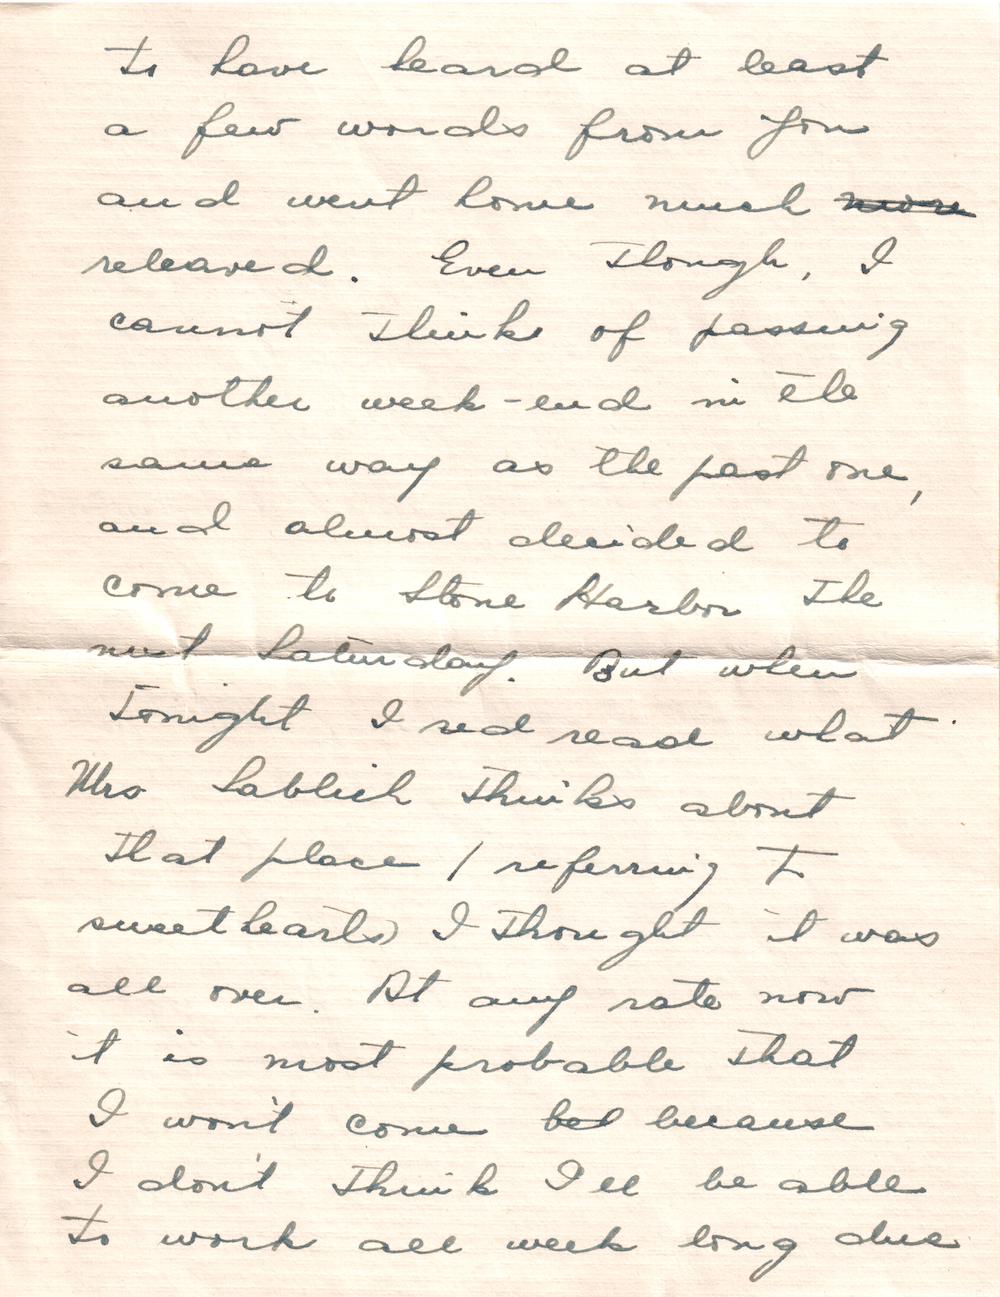 to have heard at least
a few words from you
and went home much more
releaved. Even though, I
cannot think of passing
another week-end in the
same way as the past one,
and almost decided to
come to Stone Harbor the
next Saturday. But when
tonight I red read what
Mrs Sablich thinks about
that place (referring to
sweethearts) I thought it was
all over. At any rate now
it is most probable that
I won't come bec because
I don't think I'll be able
to work all week long due